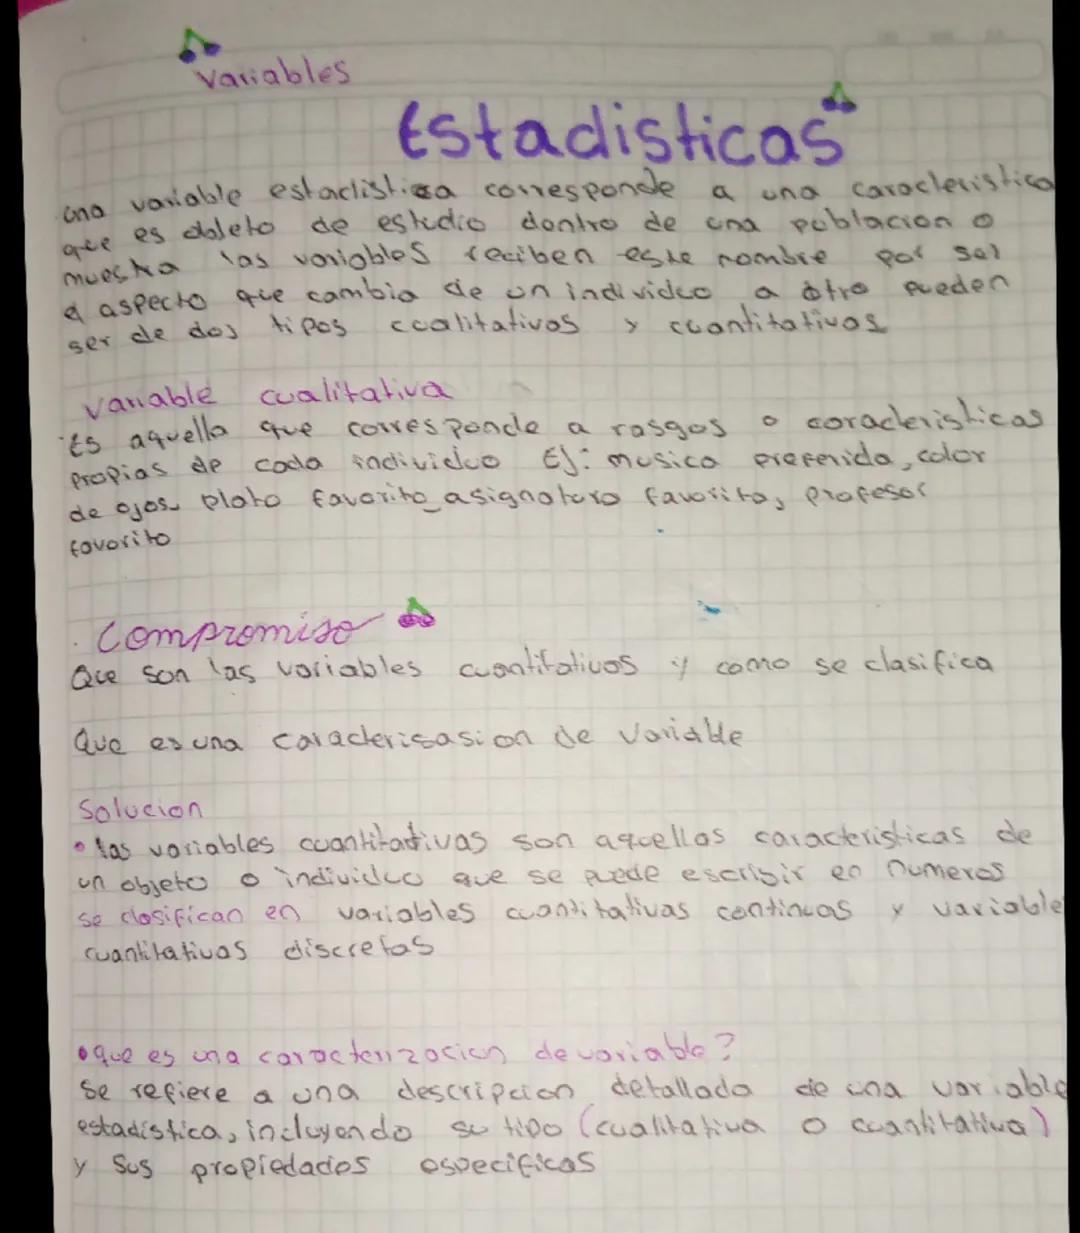 Variables
Estadisticas
una variable estadistica corresponde a una caracteristica
que es obleto de estudio dentro de una poblacion o
muestra las variables reciben este nombre por sel
el aspecto que cambia de un individuo a otro pueden
ser de dos tipos cualitativos y cuantitativos
variable cualitativa
Es aquella que corresponde a rasgos o caracteristicas
propias de cada individuo Ej: musica preferida, color
de ojos, plato favorito, asignatura favorita, profesor
favorito
Compromiso
Que son las variables cuantitativas y como se clasifica
Que es una caracterisasion de variable
Solucion
• las variables cuantitativas son aquellas caracteristicas de
un objeto o individuo que se puede escribir en numeros
se clasifican en variables cuantitativas continuas y variable
cuantitativas discretas
• que es una caracterizacion de variable?
Se refiere a una descripcion detallada de una variable
estadistica, incluyendo su tipo (cualitativa o cuantitativa)
y sus propiedades especificas